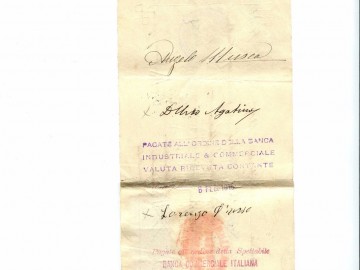 Angelo Musco
x Dell'Uto Agatino
PAGATE ALL'ORDINE DELLA BANCA
INDUSTRIALE & COMMERCIALE
VALUTA RICEVUTA CONTANTE
x Lorenzo
BANCA COMMERCIALE ITALIANA